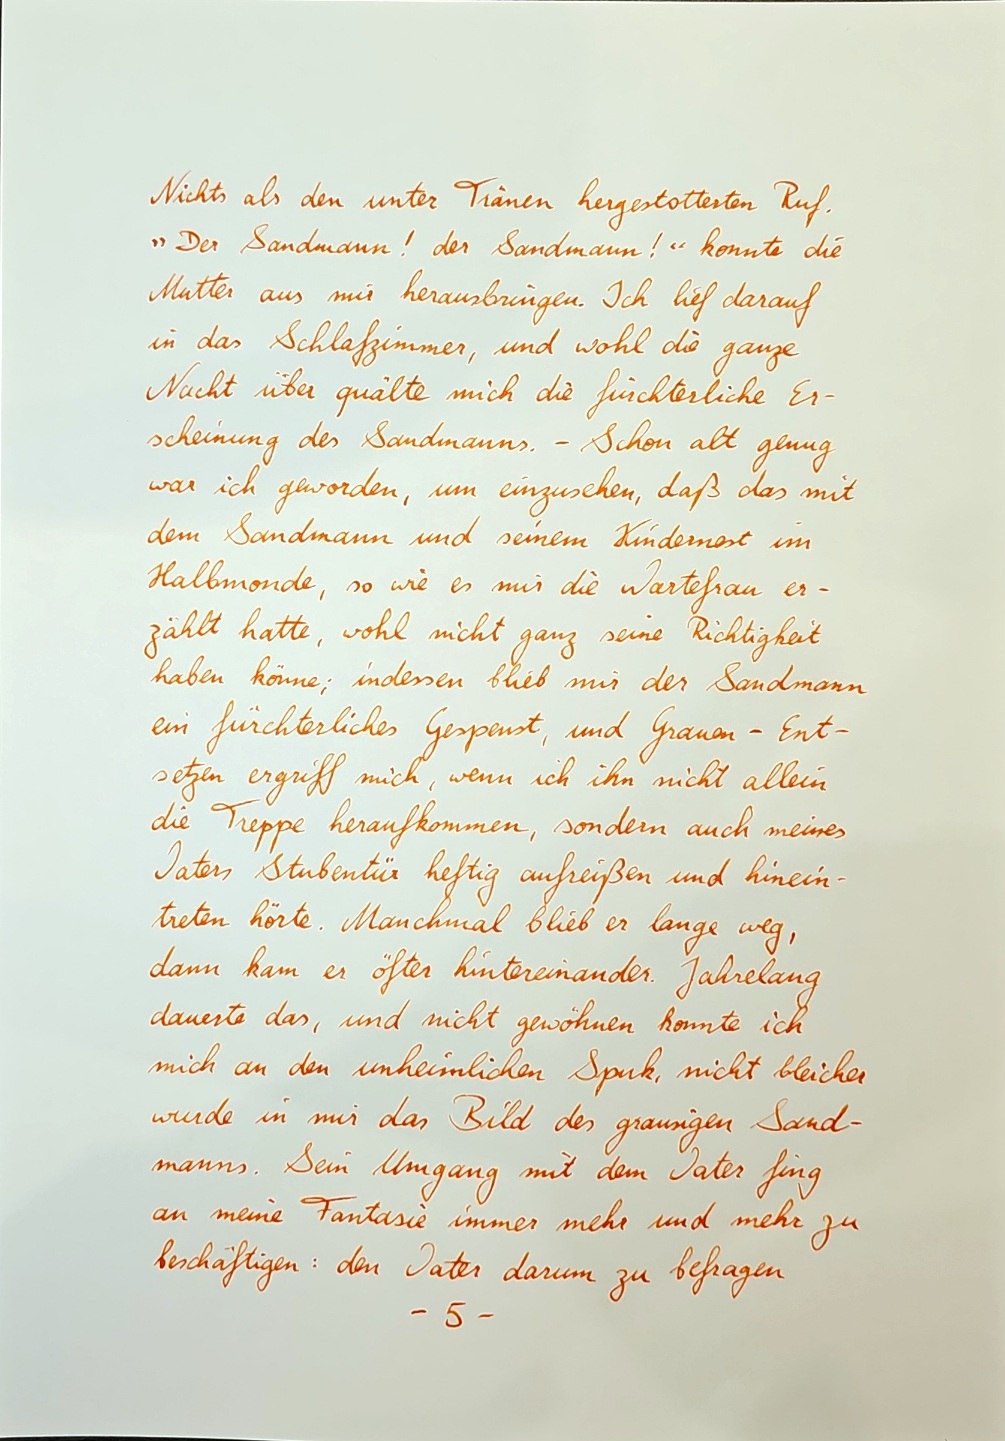 Nichts als den unter Tränen hergestotterten Ruf.
„Der Sandmann! der Sandmann!“ konnte die
Mutter aus mir herausbringen. Ich lief darauf
in das Schlafzimmer, und wohl die ganze
Nacht über quälte mich die fürchterliche Er-
scheinung des Sandmanns. – Schon alt genug
war ich geworden, um einzusehen, daß das mit
dem Sandmann und seinem Kindernest im
Halbmonde, so wie es mir die Wartefrau er-
zählt hatte, wohl nicht ganz seine Richtigkeit
haben könne; indessen blieb mir der Sandmann
ein fürchterliches Gespenst, und Grauen – Ent-
setzen ergriff mich, wenn ich ihn nicht allein
die Treppe heraufkommen, sondern auch meines
Vaters Stubentür heftig aufreißen und hinein-
treten hörte. Manchmal blieb er lange weg,
dann kam er öfter hintereinander. Jahrelang
dauerte das, und nicht gewöhnen konnte ich
mich an den unheimlichen Spuk, nicht bleicher
wurde in mir das Bild des grausigen Sand-
manns. Sein Umgang mit dem Vater fing
an meine Fantasie immer mehr und mehr zu
beschäftigen: den Vater darum zu befragen
- 5 -